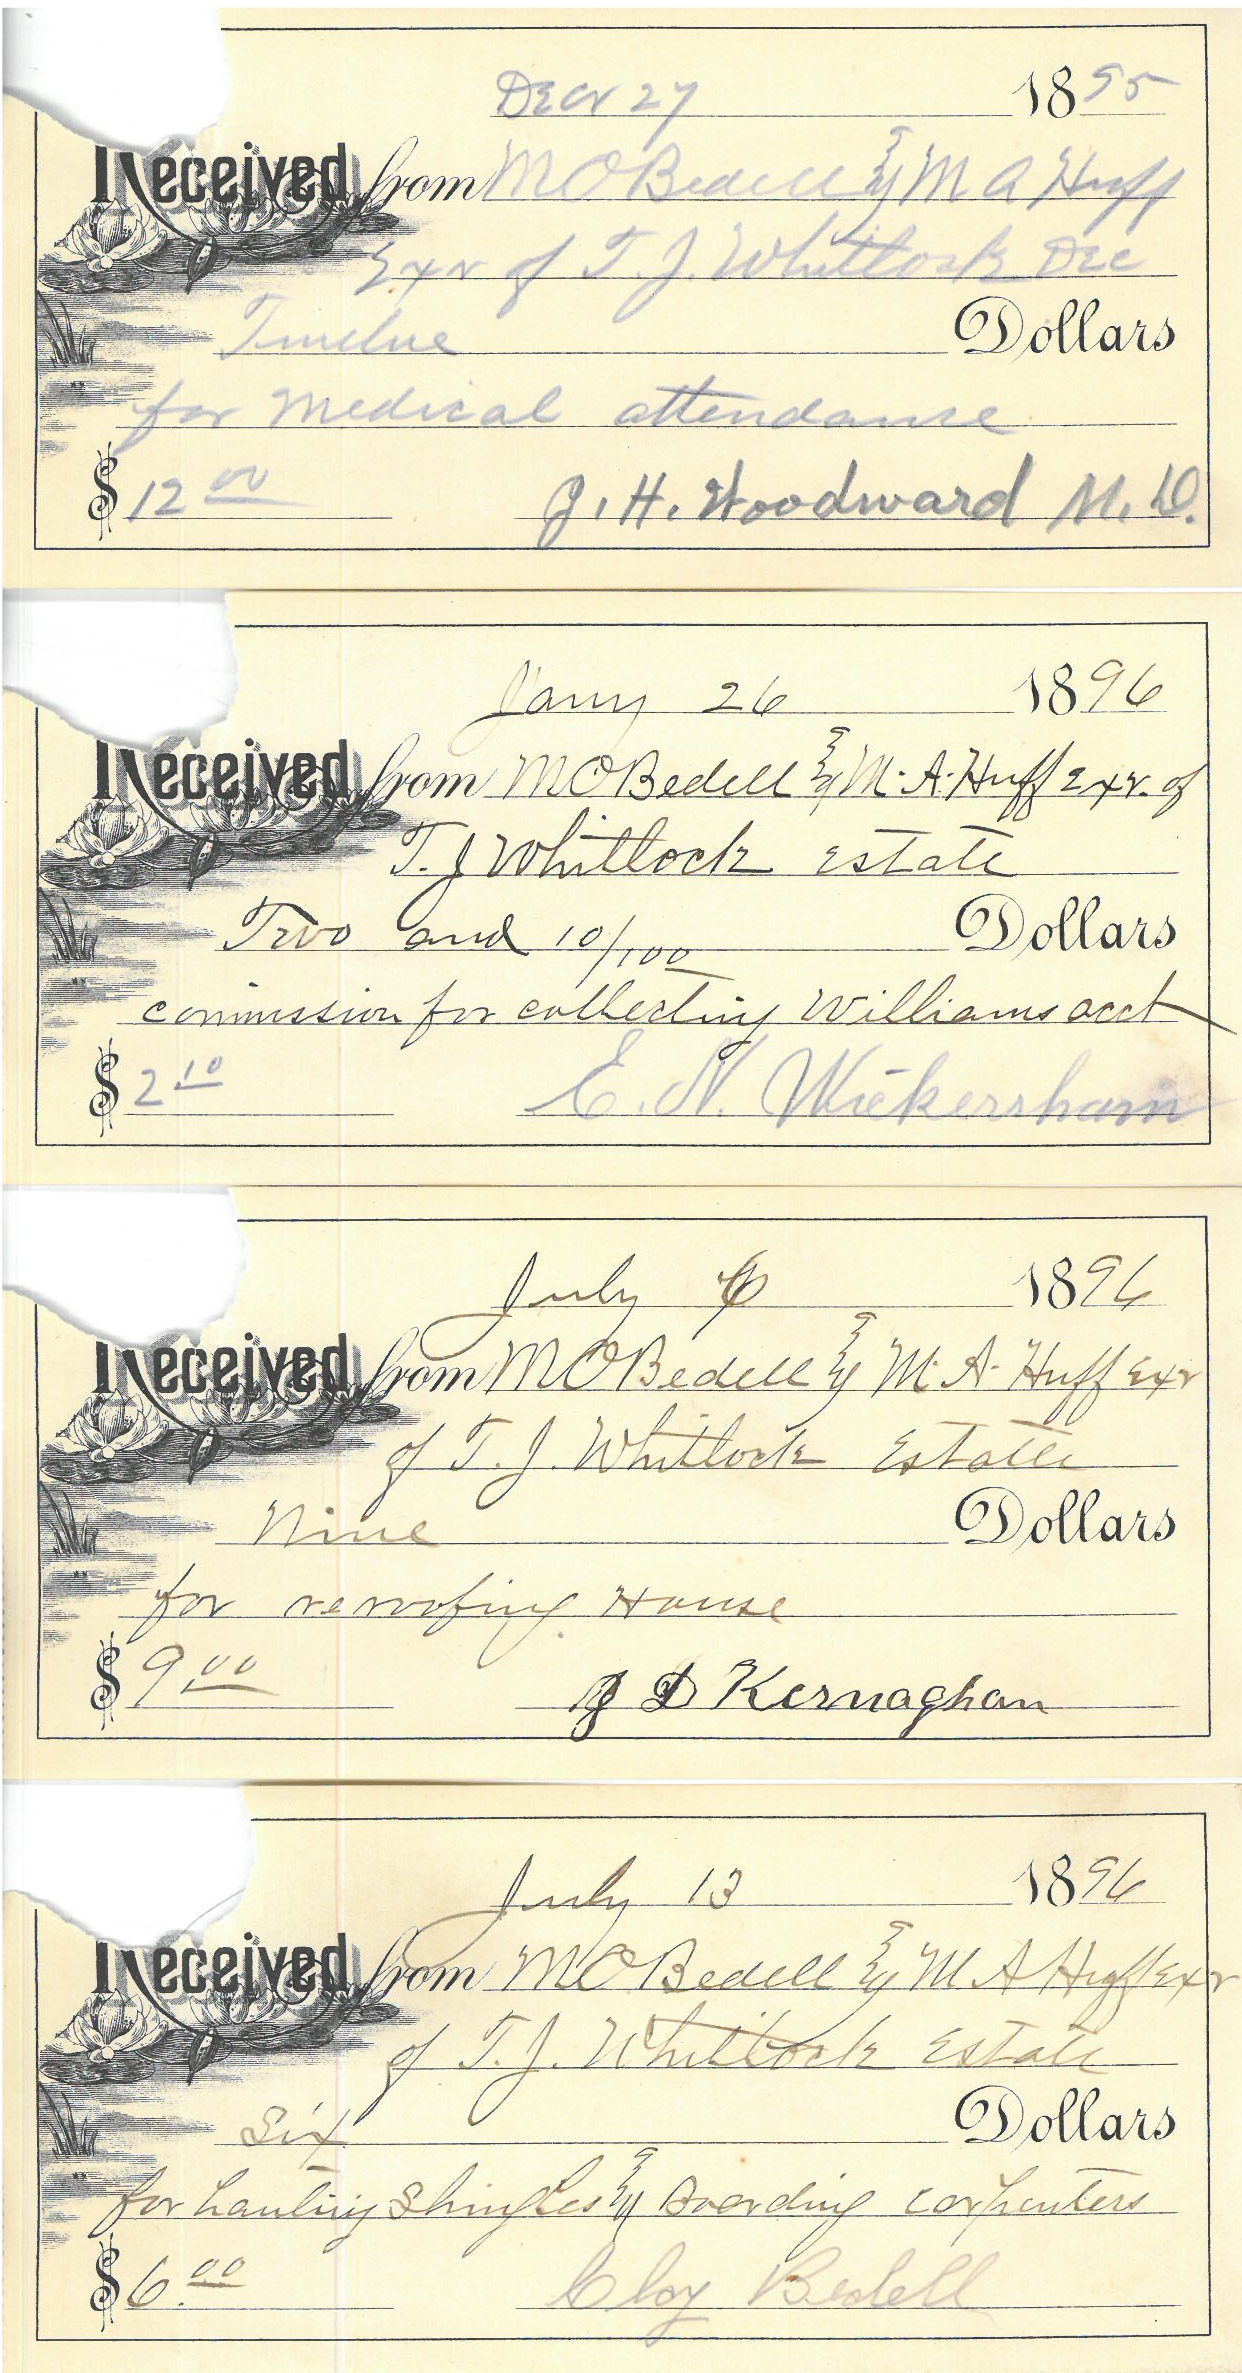 Decr 27 1895
Received from M O Bedell & M A Huff
Exr of T. J. Whitlock Dec
Twelve Dollars
for Medical attendance
$ 12 00 J. H. Woodward M. D.
Jany 26 1896
Received from M O Bedell & M. A. Huff Exr. of
T. J Whitlock Estate
Two and 10/100 Dollars
commission for collecting Williams acct
$ 2 10 E. N. Wickersham
July 6 1896
Received from M O Bedell & M. A. Huff Exr
of T. J. Whitlock Estate
Nine Dollars
for reroofing House
$ 9 00 J D Kernaghan
July 13 1896
Received from M O Bedell & M A Huff Exr
of T. J. Whitlock Estate
Six Dollars
for hauling Shingles & Boarding carpenters
$ 6.00 Cloy Bedell